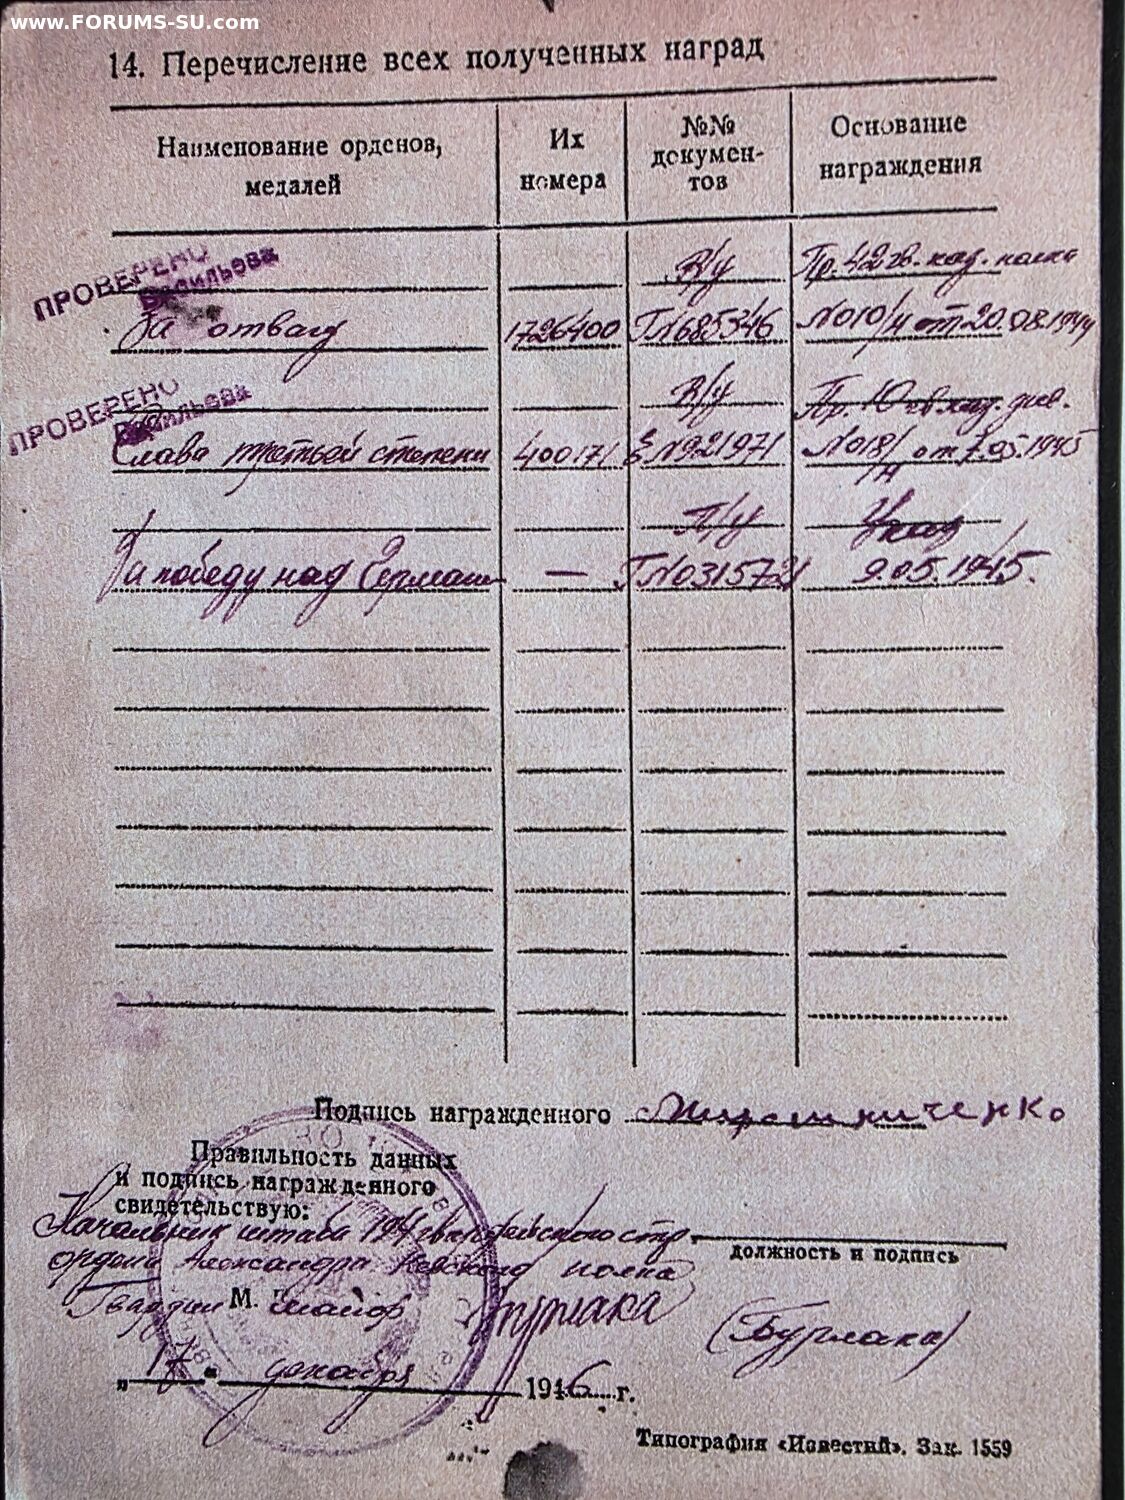 www.FORUMS-SU.com
14. Перечисление всех полученных наград
Наименование орденов, медалей
Их номера
№№ докумен-тов
Основание награждения
ПРОВЕРЕНО
Васильева
В/у Пр. 42 гв. кад. полка
За отвагу 1726400 Г№685346 №010/н от 20.08.1944
ПРОВЕРЕНО
Васильева
В/у Пр. 10 гв. кад. див.
Слава третьей степени 400171 №921971 №018/н от 7.05.1945
П/у Указ
За победу над Герман — Г№0315721 9.05.1945.
Подпись награжденного Мирошниченко
Правильность данных
и подпись награжденного
свидетельствую:
Начальник штаба 194 стр.
должность и подпись
ордена Александра Невского полка
Гвардии М. майор Бурлака (Бурлака)
„17“ декабря 1946 г.
Типография «Известий». Зак. 1559